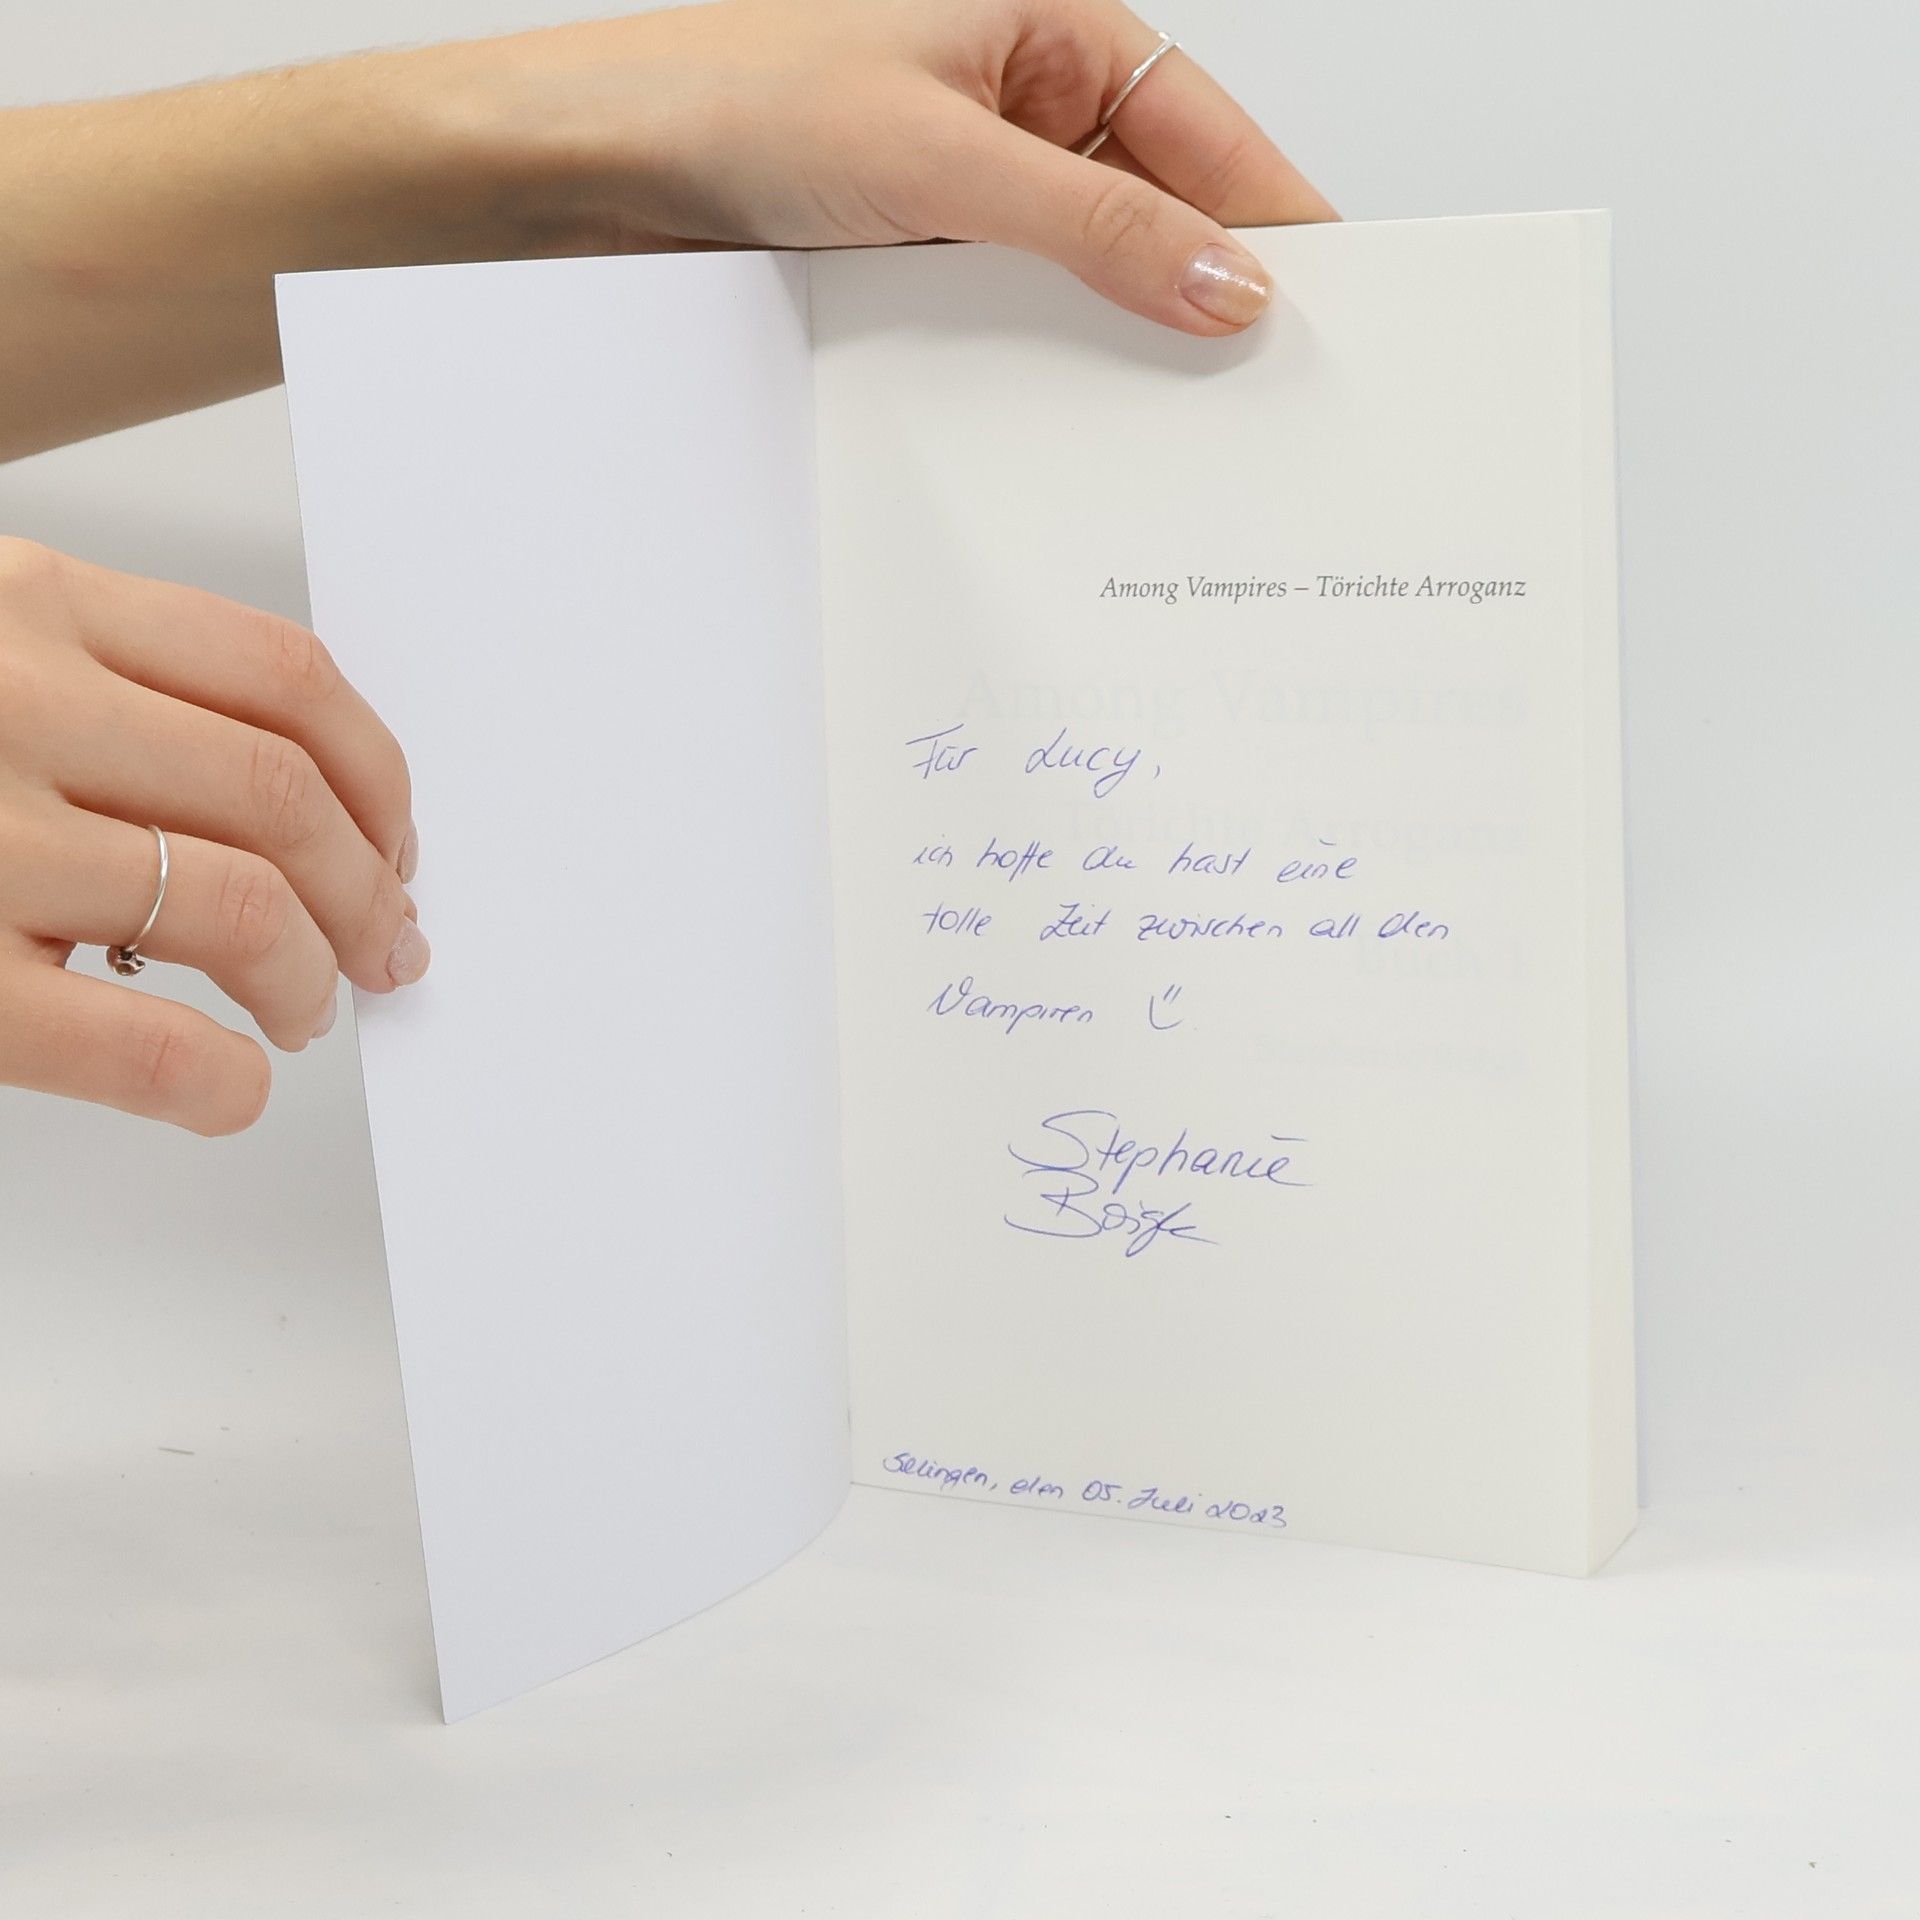 Among Vampires – Törichte Arroganz
Among Vampires
Törichte Arroganz
Für Lucy,
ich hoffe du hast eine
tolle Zeit zwischen all den
Buch 1
Vampiren
Stephanie
den 05. Juli 2023